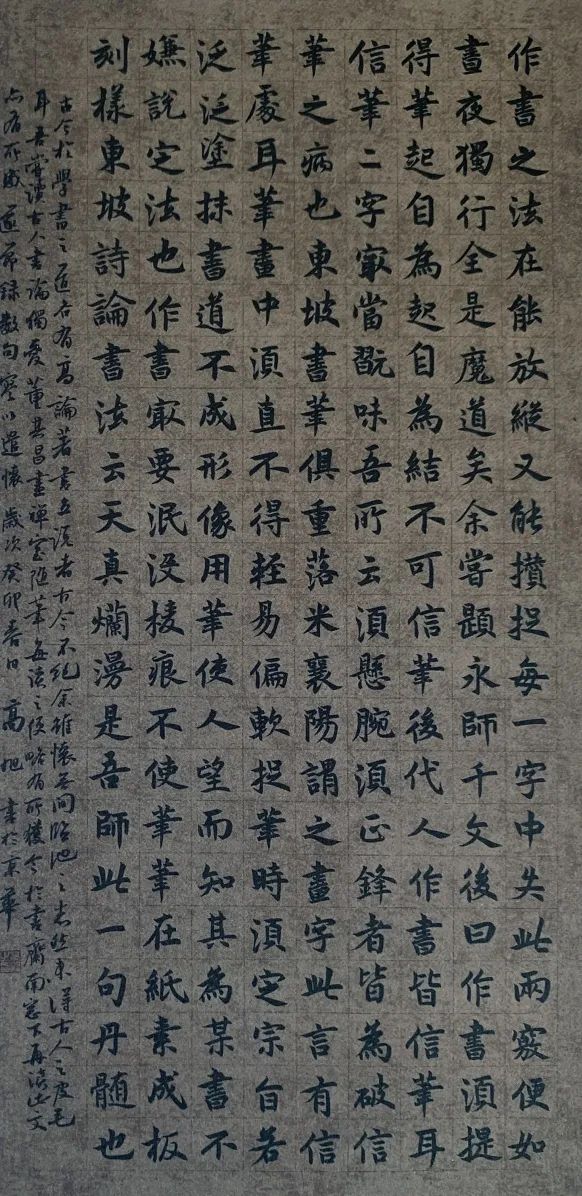 作書之法在能放縱又能攢捉每一字中失此兩竅便如
晝夜獨行全是魔道矣余嘗題永師千文後曰作書須提
得筆起自為起自為結不可信筆後代人作書皆信筆耳
信筆二字冣當翫味吾所云須懸腕須正鋒者皆為破信
筆之病也東坡書筆俱重落米襄陽謂之畫字此言有信
筆處耳筆畫中須直不得輕易偏軟捉筆時須定宗旨若
泛泛塗抹書道不成形像用筆使人望而知其為某書不
嫌說定法也作書冣要泯沒棱痕不使筆筆在紙素成板
刻樣東坡詩論書法云天真爛漫是吾師此一句丹髓也
古今於學書之道古有高論著書立說者古今不絕余雖懷無間臨池之志然未得古人之皮毛
耳吾嘗讀古人書論獨愛董其昌畫禪室隨筆每讀之後略有所獲今於書齋南窗下再讀此文
亦有所感遂節錄數句聊以遣懷歲次癸卯春日高旭書於京華